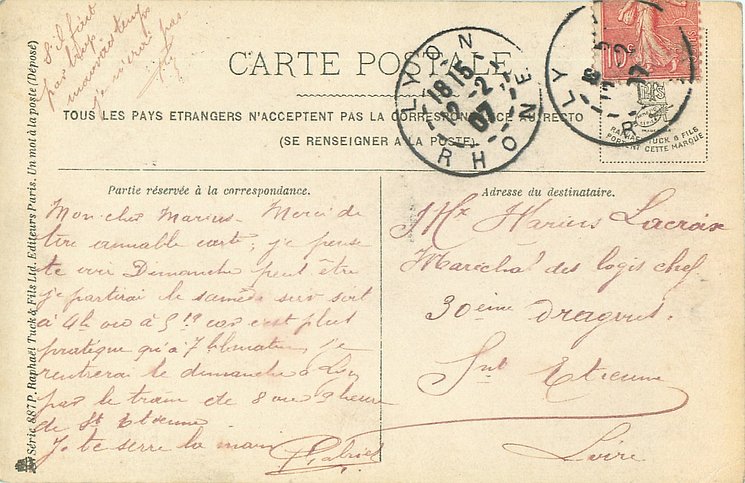 S'il fait
pas trop
mauvais temps
je n'irai pas
CARTE POSTALE
TOUS LES PAYS ETRANGERS N'ACCEPTENT PAS LA CORRESPONDANCE AU RECTO
(SE RENSEIGNER A LA POSTE)
LYON
18 15
12-2
07
RHONE
LY
R
10
RAPHAEL TUCK & FILS
PORTENT CETTE MARQUE
Série 887 P. Raphaël Tuck & Fils Ltd. Editeurs Paris. Un mot à la poste (Déposé)
Partie réservée à la correspondance.
Mon cher Marius. Merci de
ta aimable carte, je pense
te voir Dimanche peut être
je partirai le samedi soir soit
à 4h ou à 5 19 car c'est plus
pratique qu'à 7h du matin, je
rentrerai le dimanche à Lyon
par le train de 8 ou 9 heure
de St Etienne
Je te serre la main
Gabriel
Adresse du destinataire.
Mr Marius Lacroix
Maréchal des logis chef
30ème dragons.
Snt Etienne
Loire